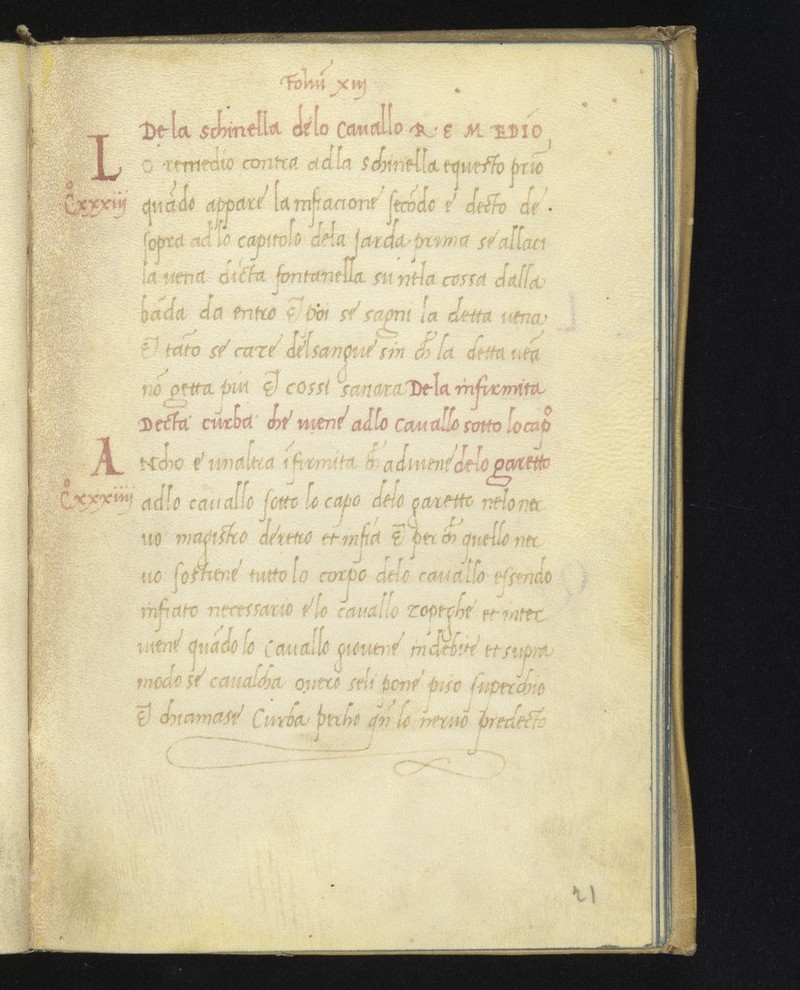 Foliu͂ xiij
De la schinella delo Cavallo R·E M EDIO
L
o remedio contra adla schinella e questo prīo
C̊ xxxiij
quādo appare la infiacione secōdo e decto de .
sopra adlo capitolo dela Jarda prima se allaci
la vena dicta fontanella su nela cossa dalla
bāda da entro Et poi se sagni la detta vena
Et tāto se caze delsangue sin ch̄ la detta veā
nō getta piu Et cossi sanara De la infirmita
Decta curba che viene adlo Cavallo sotto lo cap̊
A
Ncho e unaltra īfirmita ch̄ advene delo garetto
C̊ xxxiiij
adlo cavallo sotto lo capo delo garetto nelo ner
vo magistro deretro et infia Et per ch̄ quello ner
vo sostiene tutto lo corpo delo cavallo essendo
infiato necessario e lo cavallo zopeghe et inter
viene quādo lo Cavallo giovene indebite et supra
modo se cavalcha overo seli pone piso superchio
Et chiamase Curba perho qn̄ lo nervo predecto
21